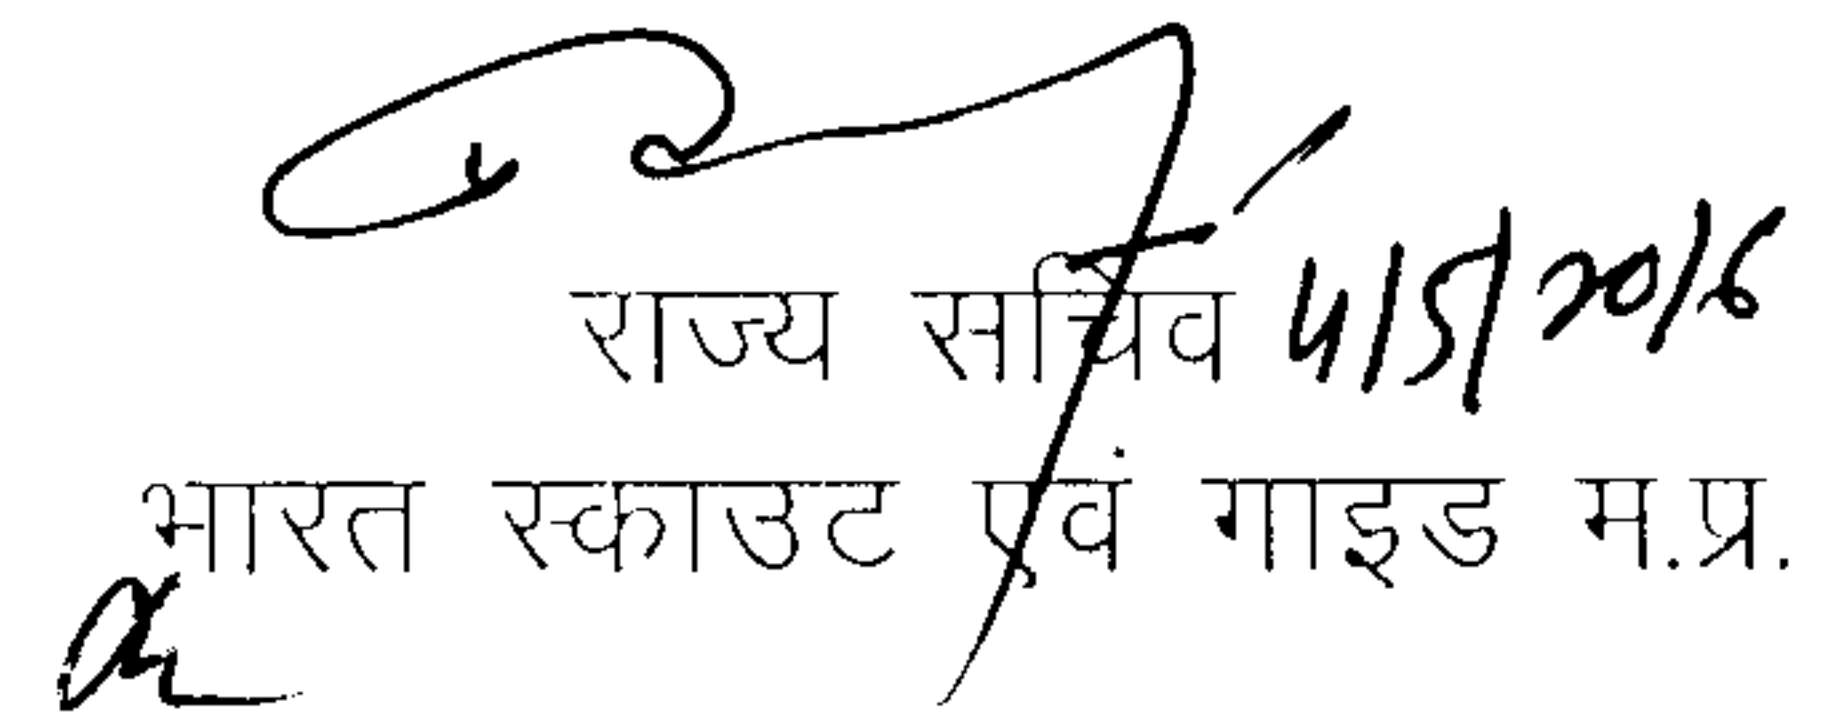 राज्य सचिव 4/5/2016
भारत स्काउट एवं गाइड म.प्र.